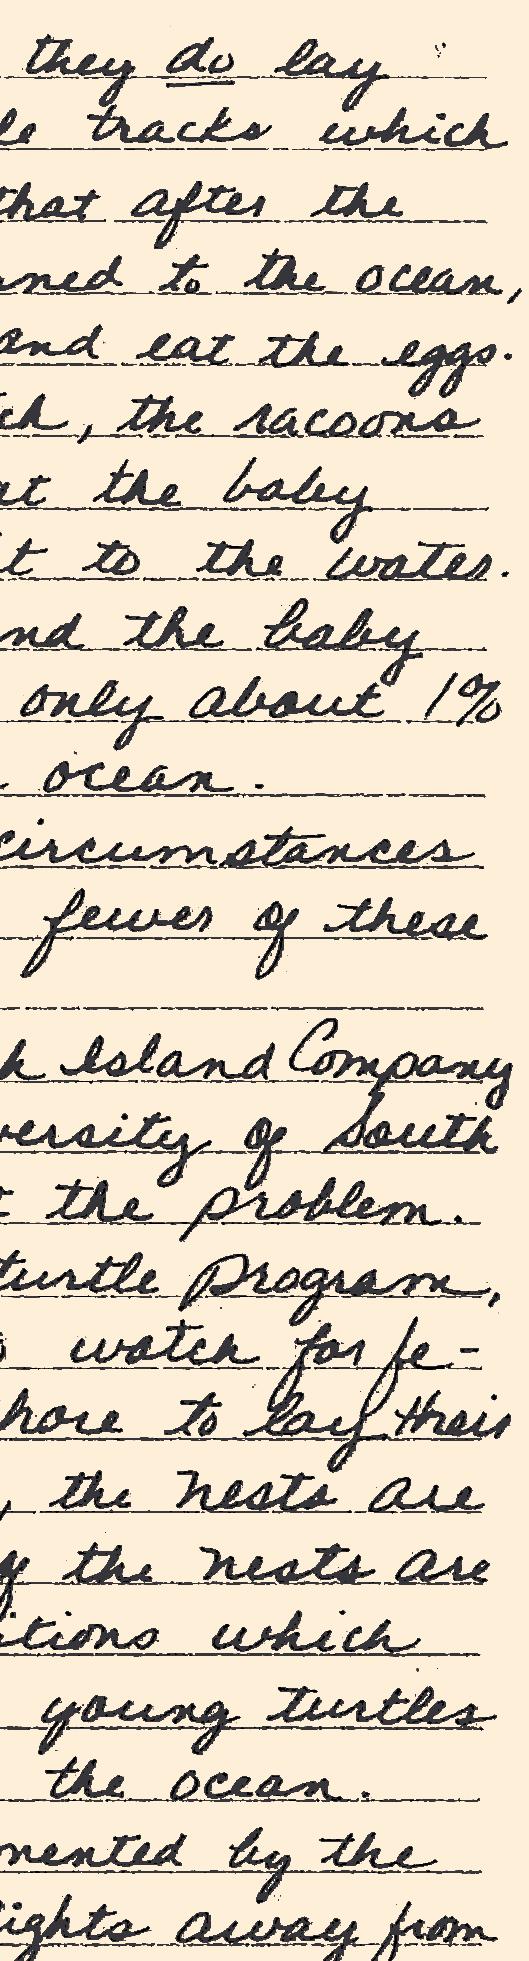 they do lay
tracks which
that after the
to the ocean,
and eat the eggs.
, the racoons
the baby
to the water.
the baby
only about 1%
ocean.
circumstances
fewer of these
Island Company
of South
the problem.
turtle program,
watch for fe-
to lay their
, the nests are
the nests are
which
young turtles
the ocean.
by the
away from